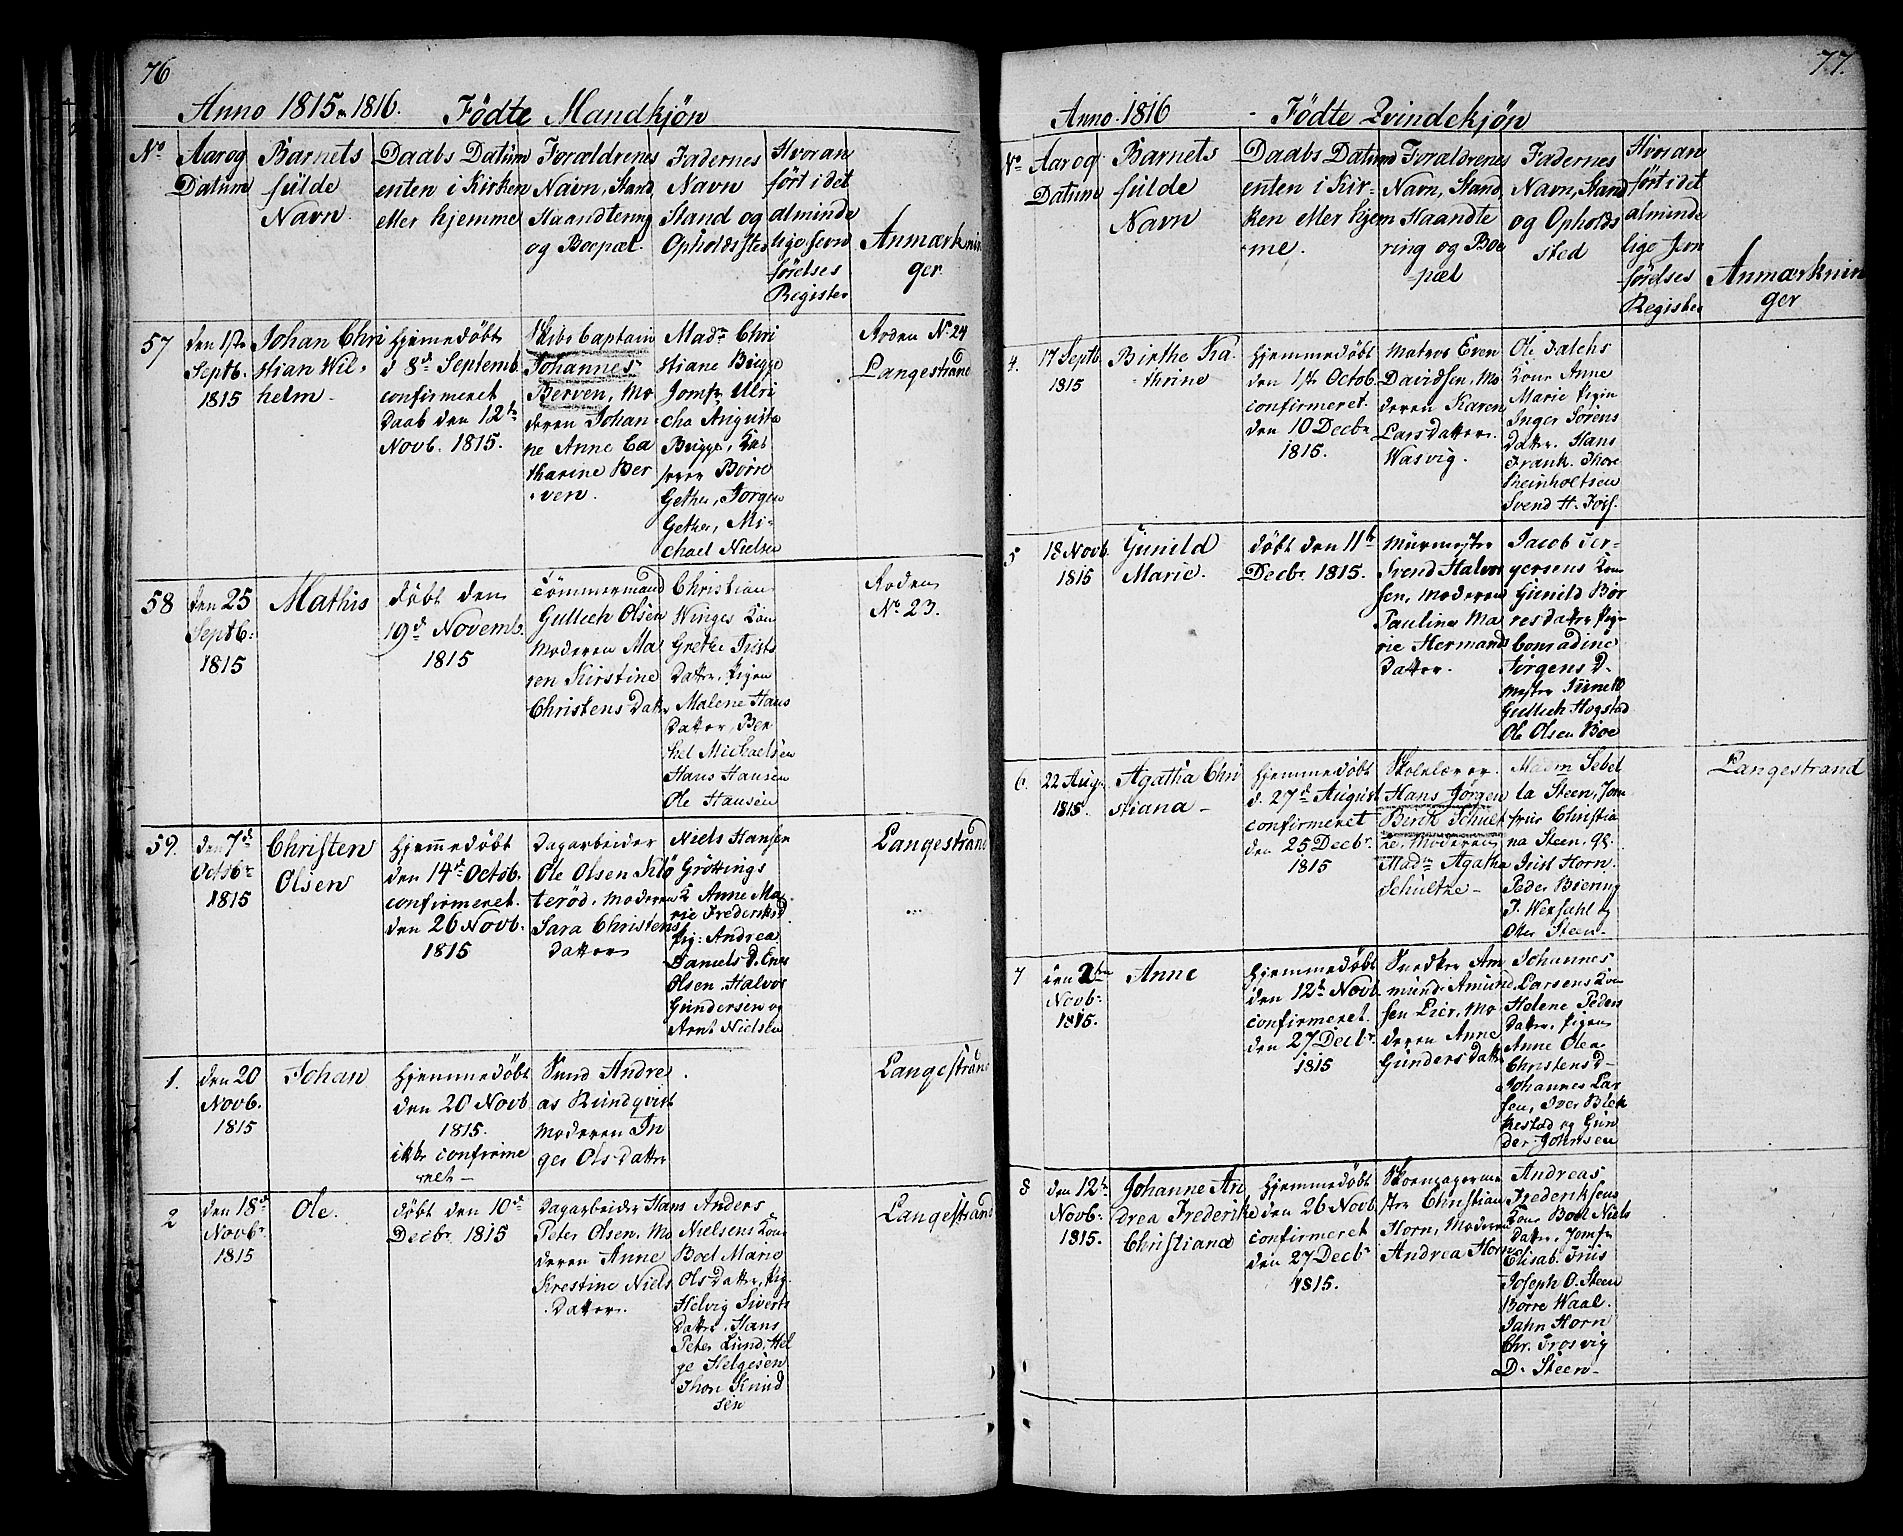 76
Anno 1815 & 1816. Fødte Mandkjøn
No
Aar og
Datum
Barnets
fulde
Navn
Daabs Datum
enten i Kirken
eller hjemme
Forældrenes
Navn, Stand
Haandtering
og Boepæl.
Fadernes
Navn
Stand og
Opholdssted
Hvor an
ført i det
alminde
lige Jevn
førelses
Register
Anmærknin
ger
57
den 1ste
Septb.
1815
Johan Chri
stian Wil-
helm.
hjemmedøbt
d 8d Septemb.
confirmeret
Daab den 12te
Novb. 1815.
Skibs Captain
Johannes
Berven, Mo
deren Johan
ne Anne Ca
tharine Ber
ven.
Madm Chri
stiane Bugge
Jomfr Ulri
cha Augusta
Bugge,
Børre
Gether, Jørgen
Gether, Mi-
chael Nielsen
Roden No 24
Langestrand
58
den 25
Septb.
1815
Mathis
døbt den
19d Novemb.
1815
Tømmermand
Gullech Olsen
Moderen Ma
ren Kirstine
Christens Datter
Christian
Winges Kone
Grethe
Datter, Pigen
Malene Hans
Datter, Ber
thel Michaelsen
Hans Hansen
Ole Hansen
Roden
No 23.
59.
den 7d
Octobr
1815
Christen
Olsen
hjemmedøbt
den 14d Octob.
confirmeret
den 26 Novb.
1815
Dagarbeider
Ole Olsen Klø
terød, Moderen
Sara Christens
Datter
Niels Hansen
Grøttings
K Anne Ma
rie Frederiksd
Pig: Andrea
Daniels D. Enes
Olsen. Halvor
Gundersen og
Arnt Nielsen
Langestrand
1.
den 20
Novb.
1815
Johan
hjemmedøbt
den 20 Novb
1815.
ikke confirme
ret
Svend Andre
as Rundqvist
Moderen In
ger Olsdatter
Langestrand
2
den 18d
Novbr
1815
Ole.
døbt den 10d
Decbr 1815
Dagarbeider Hans
Peter Olsen, Mo
deren Anne
Krestine Niels
Datter.
Anders
Nielsens Kone
Boel Marie
Olsdatter, Pig.
Helvig Siverts
Datter, Hans
Peter Lund, Hel
ge Helgesen
Thor Knud
sen
Langestrand
77.
Anno 1816 Fødte Qvindekjøn
No
Aar og
Datum
Barnets
fulde
Navn
Daabs Datum
enten i Kir-
ken eller hjem
me.
Forældrenes
Navn, Stand,
Haandte
ring og Boe
pæl
Fadernes
Navn, Stand
og Opholds
sted
Hvor an
ført i det
alminde
lige Jevn
førelses
Register
Anmærknin
ger
4.
17 Septb.
1815
Birthe Ka-
thrine
hjemmedøbt
den 1ste Octob.
confirmeret
den 10 Decbr
1815.
Matros Even
Davidsen, Mo
deren Karen
Larsdatter
Wasvig.
Ole Falchs
Kone Anne
Marie Pigen
Inger Sørens
Datter. Hans
Frank. Thore
Steinholtsen
Svend H. Foss.
5
18 Novb.
1815
Gunild
Marie.
døbt den 11te
Decbr 1815.
Muurmester
Svend Halvor
sen, Moderen
Pauline Ma
rie Hermand
Datter.
Jacob Jør-
gensens Kone
Gunild Bør
resdatter Pigen
Conradine
Jørgens D.
Gullich Hogstad
Ole Olsen Boe
6.
22 Aug.
1815.
Agatha Chri
stiana
hjemmedøbt
d. 27d August
confirmeret
den 25 Decbr.
1815
Skolelærer
Hans Jørgen
Berth Schult
ze, Moderen
Madm Agatha
Schultze
Madm Sebel
la Steen, Jom
frue Christia
na Steen, Hr.
Horn.
Peder Biering
Otter Steen
Langestrand
7
den
Novbr
1815.
Anne
hjemmedøbt
den 12te Novb
confirmeret
den 27 Decbr
1815
Snedker Am
mund Amund
sen Lier, Mo
deren Anne
Gundersdatter
Johannes
Larsens Ko
Helene Peders
Datter, Pigen
Anne Olea
Christens D
Johannes Lar
sen, Iver Blek
kestad og Gun
der Johnsen
8
den 12te
Novbr
1815.
Johanne An
drea Frederike
Christiana
hjemmedøbt
den 26 Novb
confirmeret
den 27 Decbr
1815.
Skomagerme
ster Christian
Horn, Moderen
Andrea Horn
Andreas
Frederiksens
Kone Boel Niels
Datter, Jomfr
Elisab. Friis
Joseph O. Steen
Børre Waal.
Jahn Horn
Chr. Trosvig
D. Steen